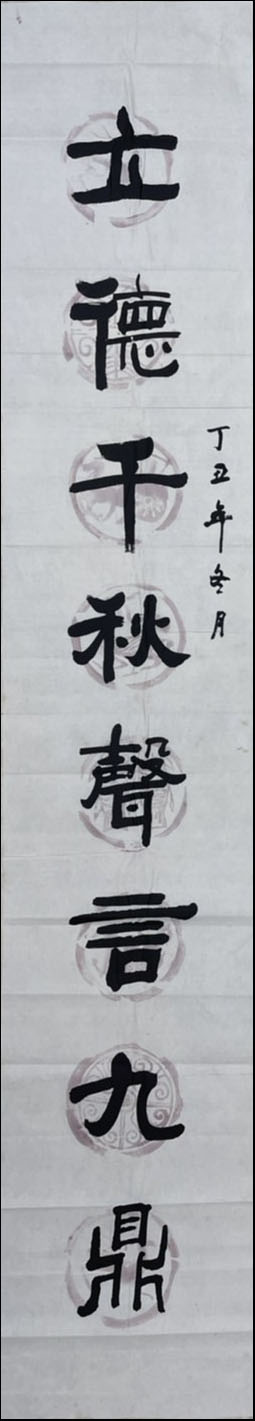 丁丑年冬月
立德千秋聲言九鼎